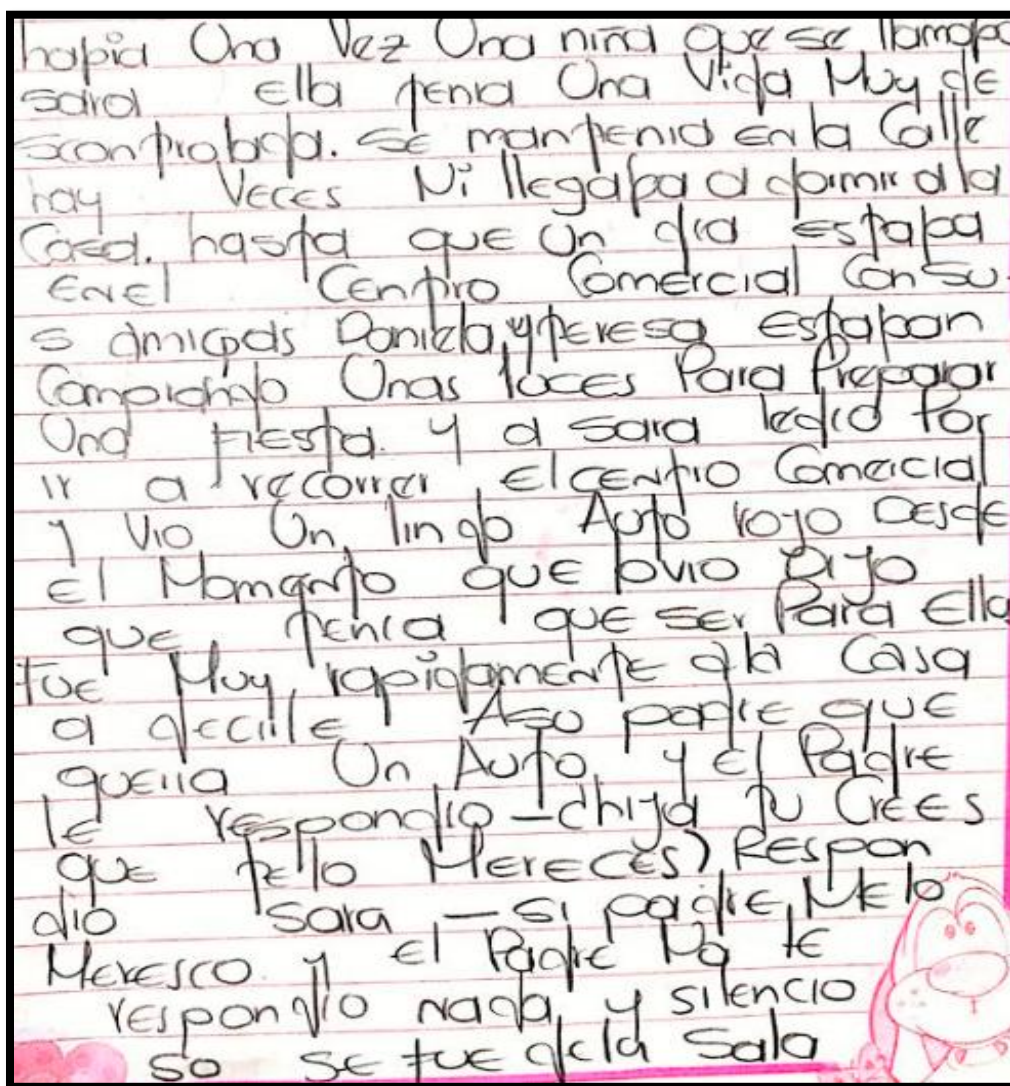 habia Una Vez Una niña que se llamaba
sara ella tenia Una Vida Muy de
scontrolada. se mantenia en la Calle
hay Veces Ni llegaba a dormir a la
Casa. hasta que Un dia estaba
En el Centro Comercial Con su
s amigas Daniela, y teresa Estaban
Comprando Unas luces Para Preparar
Una Fiesta. y a sara le dio Por
ir a recorrer El centro Comercial
y Vio Un lindo Auto rojo Desde
el Momento que lo vio Dijo
que tenia que ser Para Ella
fue Muy rapidamente a la Casa
a decirle A su padre que
queria Un Auto, y el Padre
le respondio - ¿hija tu Crees
que te lo Mereces) Respon
dio Sara - si padre, Me lo
Meresco y el Padre No le
respondio nada, y silencio
so se fue de la Sala